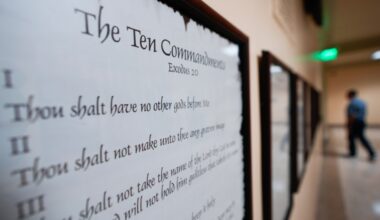 The Ten Commandments
Exodus 20
I
Thou shalt have no other gods before Me
II
Thou shalt not make unto thee any graven image
III
Thou shalt not take the name of the Lord thy God in vain
will not hold him guiltless that